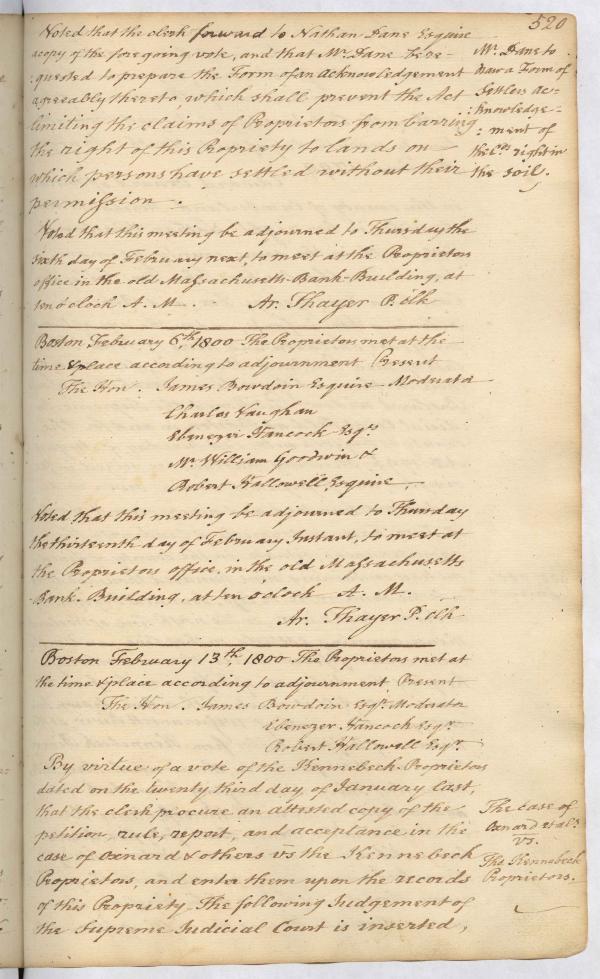 520
Voted that the clerk forward to Nathan Dane Esquire
a copy of the foregoing vote, and that Mr. Dane be re-
:quested to prepare the Form of an acknowledgement
agreeably thereto, which shall prevent the Act
limiting the claims of Proprietors from barring
the right of this Propriety to lands on
which persons have settled without their
permission.
Mr. Dane to
draw a Form of
Settlers ac-
:knowledge-
:ment of
the Co.s right in
the soil.
Voted that this meeting be adjourned to Thursday the
sixth day of February next, to meet at the Proprietors
office in the old Massachusetts-Bank-Building, at
ten o'clock A. M. Ar. Thayer P. clk
Boston February 6th. 1800 The Proprietors met at the
time & place according to adjournment Present
The Hon. James Bowdoin Esquire Moderator
Charles Vaughan
Ebenezer Hancock Esqr.
Mr. William Goodwin &
Robert Hallowell Esquire
Voted that this meeting be adjourned to Thursday
the thirteenth day of February Instant, to meet at
the Proprietors office, in the old Massachusetts
Bank-Building, at ten o'clock A. M.
Ar. Thayer P. clk
Boston February 13th. 1800 The Proprietors met at
the time & place according to adjournment Present
The Hon. James Bowdoin Esqr. Moderator
Ebenezer Hancock Esqr.
Robert Hallowell Esqr.
By virtue of a vote of the Kennebeck-Proprietors
dated on the twenty third day of January last,
that the clerk procure an attested copy of the
petition, rule, report, and acceptance in the
case of Oxnard & others vs the Kennebeck
Proprietors, and enter them upon the records
of this Propriety The following Judgement of
the Supreme Judicial Court is inserted,
The case of
Oxnard et als.
vs.
The Kennebeck
Proprietors.